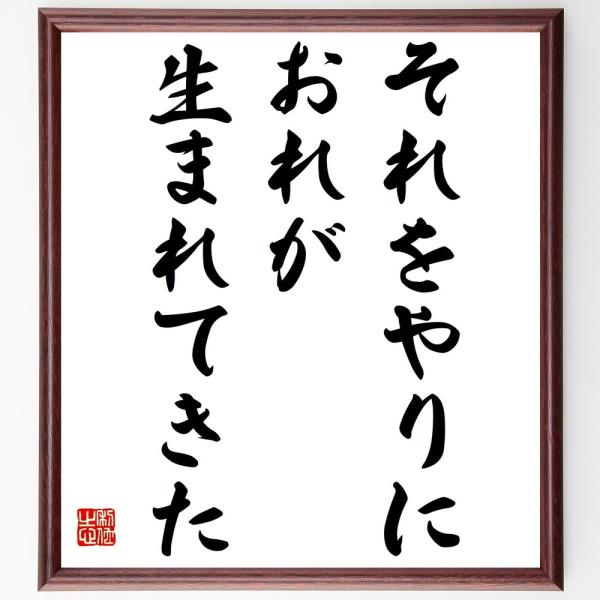 それをやりに
おれが
生まれてきた